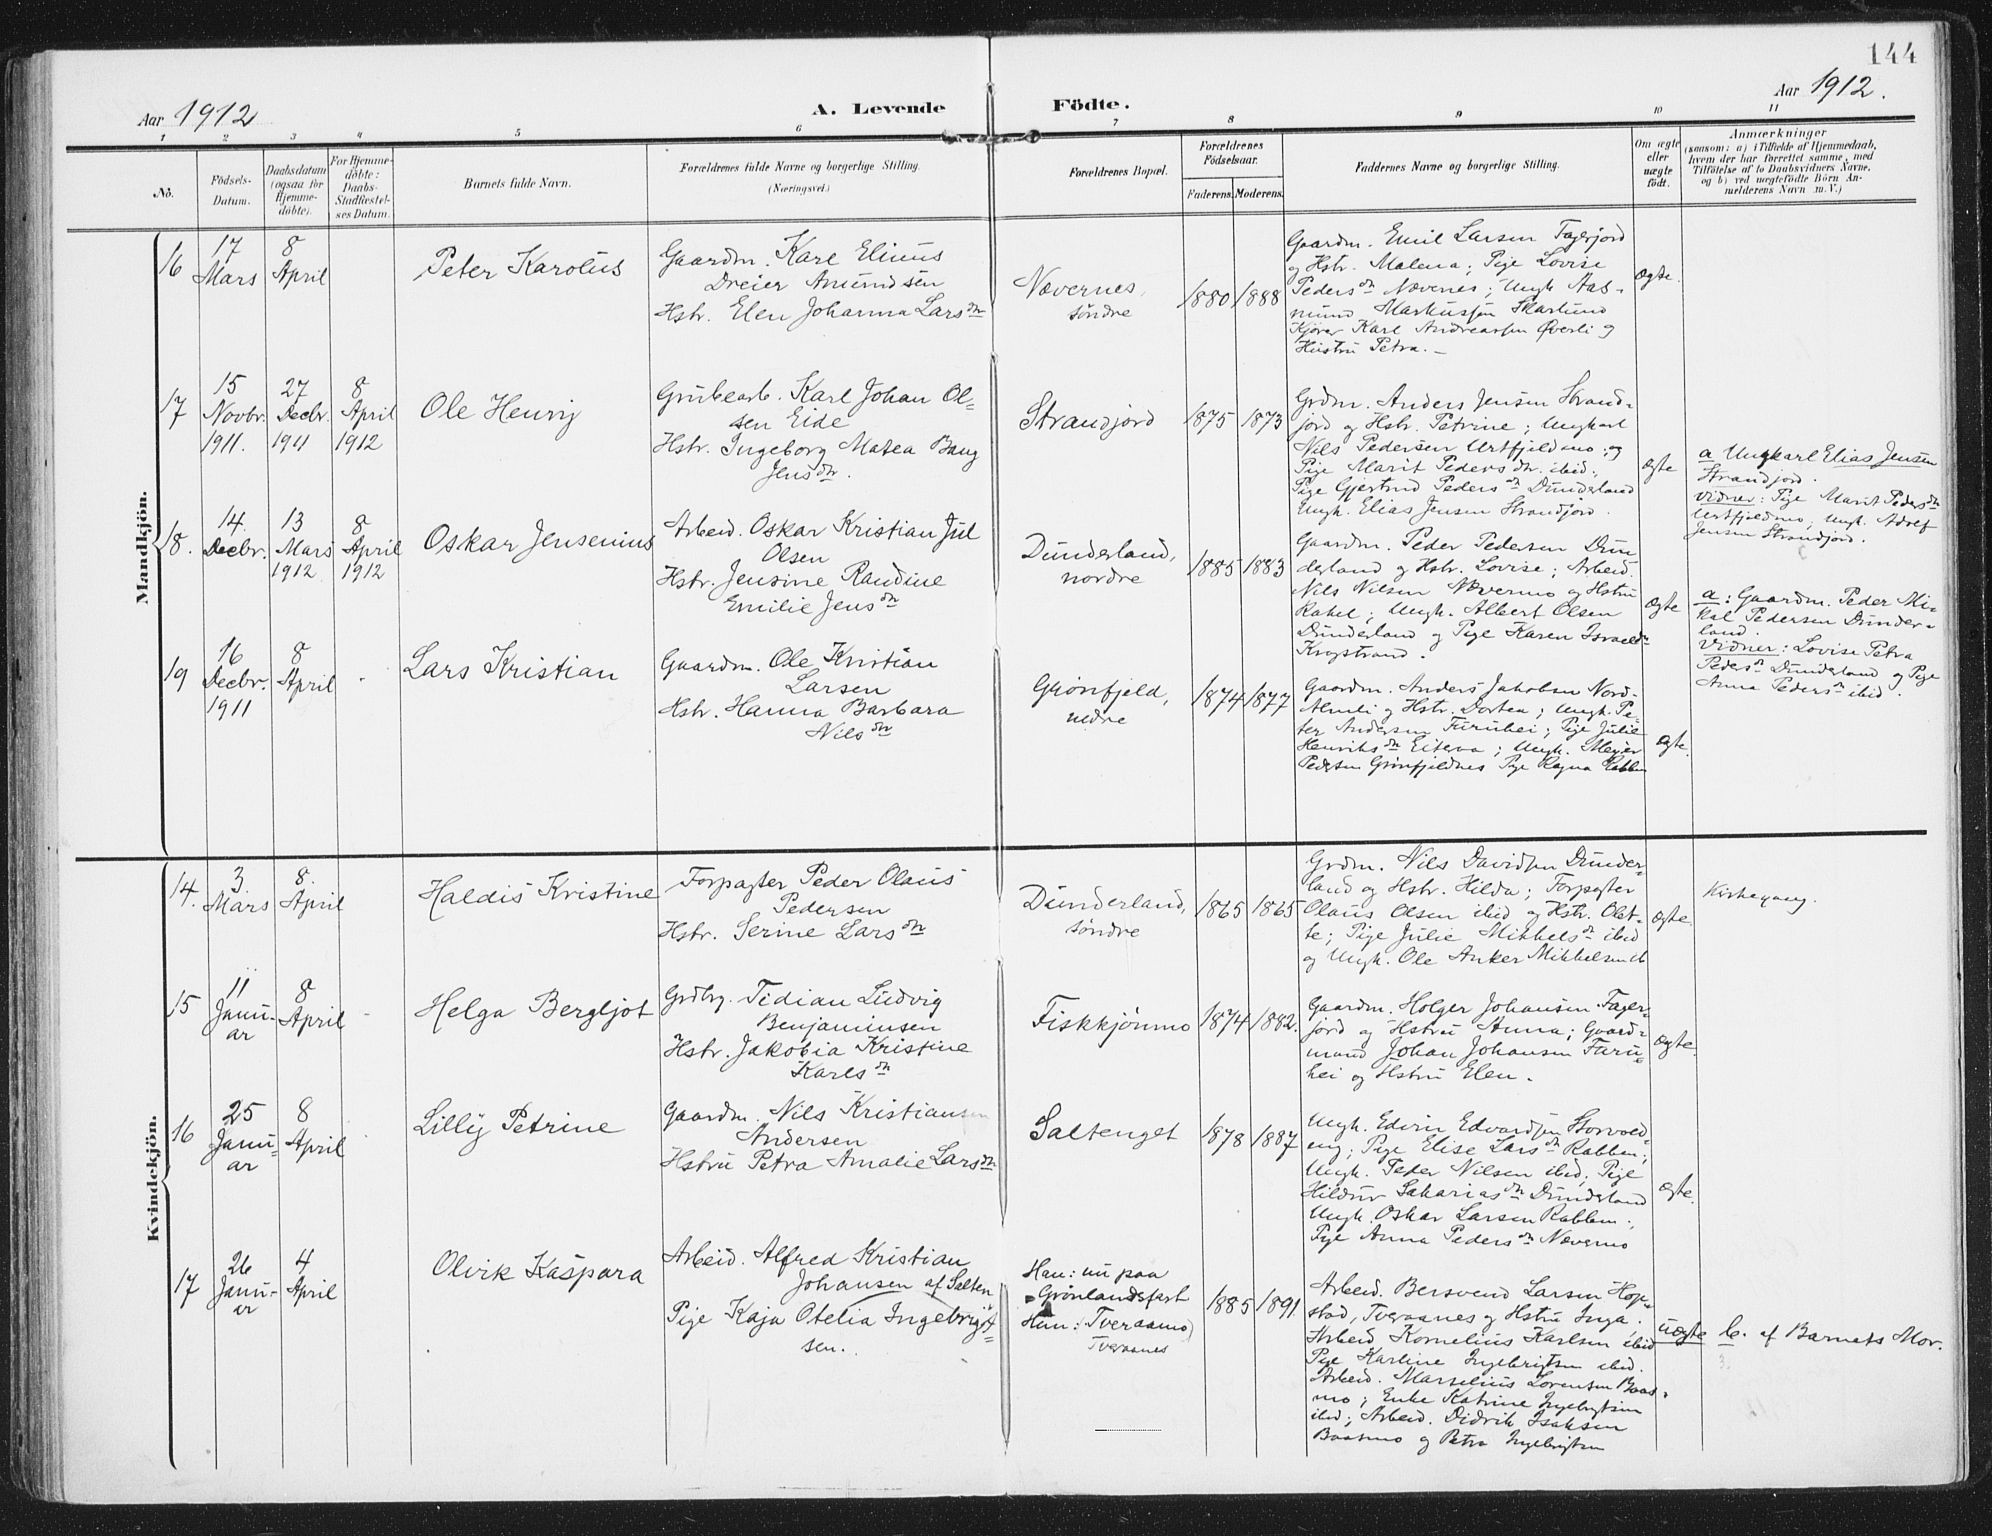 144
Aar 1912
A. Levende Födte.
Aar 1912.
1 2 3 4 5 6 7 8 9 10 11
No.
Födsels-
Datum.
Daabsdatum
(ogsaa for
Hjemme-
döbte).
For Hjemme-
döbte:
Daabs-
Stadfæstel-
ses Datum.
Barnets fulde Navn.
Forældrenes fulde Navne og borgerlige Stilling.
(Næringsvei.)
Forældrenes Bopæl.
Forældrenes
Födselsaar.
Faderens. Moderens.
Faddernes Navne og borgerlige Stilling.
Om ægte
eller
uægte
födt.
Anmærkninger
(saasom: a) i Tilfælde af Hjemmedaab,
hvem der har forrettet samme, med
Tilföielse af to Daabsvidners Navne,
og b) ved uægtefödte Börn An-
melderens Navn m. V.)
Mandkjön.
16
17
Mars
8
April
Peter Karolus
Gaardm. Karl Elinus
Dreier Amundsen
Hstr. Elen Johanna Larsdtr
Nævernes,
söndre
1880 1888
Gaardm. Emil Larsen Fagerjord
og Hstr. Malena; Pige Lovise
Pedersdtr Nævernes; Ungk. Aas-
mund Markussen Skarlund
Kjører Karl Andreassen Øverli og
Hustru Petra.
Ægte.
17
15
Novbr.
1911.
27
Decbr.
1911
8
April
1912
Ole Henrig
Grubearb. Karl Johan Ol-
sen Eide
Hstr. Ingeborg Matea Bang
Jensdtr.
Strandjord
1875 1873
Grdm. Anders Jensen Strand-
jord og Hstr. Petrine; Ungkarl
Nils Pedersen Urtfjeldmo; og
Pige Marit Pedersdtr. ibid.;
Pige Gjertrud Pedersdtr Dunderland
Ungk. Elias Jensen Strandjord.
Ægte
a Ungkarl Elias Jensen
Strandjord.
Vidner: Pige Marit Pedersdtr
Urtfjeldmo, Ungk. Adolf
Jensen Strandjord.
18.
14.
Decbr.
13
Mars
1912
8
April
1912
Oskar Jensenius
Arbeid. Oskar Kristian Jul
Olsen
Hstr. Jensine Randine
Emilie Jensdtr
Dunderland,
nordre
1885 1883
Gaardm. Peder Pedersen Dun-
derland og Hstr. Lovise; Arbeid.
Nils Nilsen Nævermo og Hstru
Rakel; Ungk. Albert Olsen
Dunderland og Pige Karen Israelsdtr
Krogstrand.
Ægte
a: Gaardm. Peder Mi-
kal Pedersen Dunder-
land.
Vidner: Lovise Petra
Pedersdtr Dunderland og Pige
Anna Pedersdtr ibid.
19
16
Decbr.
1911
8
April
Lars Kristian
Gaardm. Ole Kristian
Larsen
Hstr. Hanna Barbara
Nilsdtr
Grønfjeld,
nedre
1874 1877
Gaardm. Anders Jakobsen Nord-
og Hstr. Dortea; Ungk. Pe-
ter Andersen Furuhei; Pige Julie
Henriksdtr Eiteraa; Ungk. Meyer
Pedersen Grønfjeldnes Pige Ragna
Ægte.
Kvindekjön.
14.
3
Mars
8.
April
Haldis Kristine
Forpagter Peder Olaus
Pedersen
Hstr. Serine Larsdtr
Dunderland,
søndre
1865 1865
Grdm. Nils Davidsen Dunder-
land og Hstr. Hilda; Forpagter
Olaus Olsen ibid og Hstr. Olet-
te; Pige Julie Mikkelsdtr ibid
og Ungk. Ole Anker Mikkelsen ib
Ægte.
Kirkegang.
15
11
Janu-
ar
8
April
Helga Bergljot
Grdbrg. Tidian Ludvig
Benjaminsen
Hstr. Jakobia Kristine
Karlsdtr
Fiskkjønmo
1874 1882.
Gaardm. Holger Johansen Fager-
jord og Hstru Anna; Gaard-
mand Johan Johansen Furu-
hei og Hstru Elen.
Ægte.
16
25
Janu-
ar
8
April
Lilly Petrine
Gaardm. Nils Kristiansen
Andersen
Hstru Petra Amalie Larsdtr
Saltenget
1878 1887
Ungk. Edvin Edvardsen Storvold-
eng; Pige Elise Larsdtr Rabben;
Ungk. Peder Nilsen ibid; Pige
Hildur Sakariasdtr Dunderland
Ungk. Oskar Larsen Rabben.;
Pige Anna Pedersdtr Nævermo
Ægte.
17
26
Janu-
ar
4
April
Olvik Kaspara
Arbeid. Alfred Kristian
Johansen af Salten
Pige Kaja Otelia Ingebrigt-
sen.
Han: nu paa
Grönlandsfart
Hun: (Tveraamo)
Tveraanes
1885 1891
Arbeid. Bersvend Larsen Hop-
stad, Tveraanes og Hstru Inga.
Arbeid Kornelius Karlsen ibid
Pige Karline Ingebrigtsen ibid.
Arbeid. Marselius Lorensen Baas-
mo; Enke Katrine Ingebrigtsen
ibid; Arbeid. Didrik Isaksen
Baasmo og Petra Ingebrigtsen
uægte
b. af Barnets Mor.